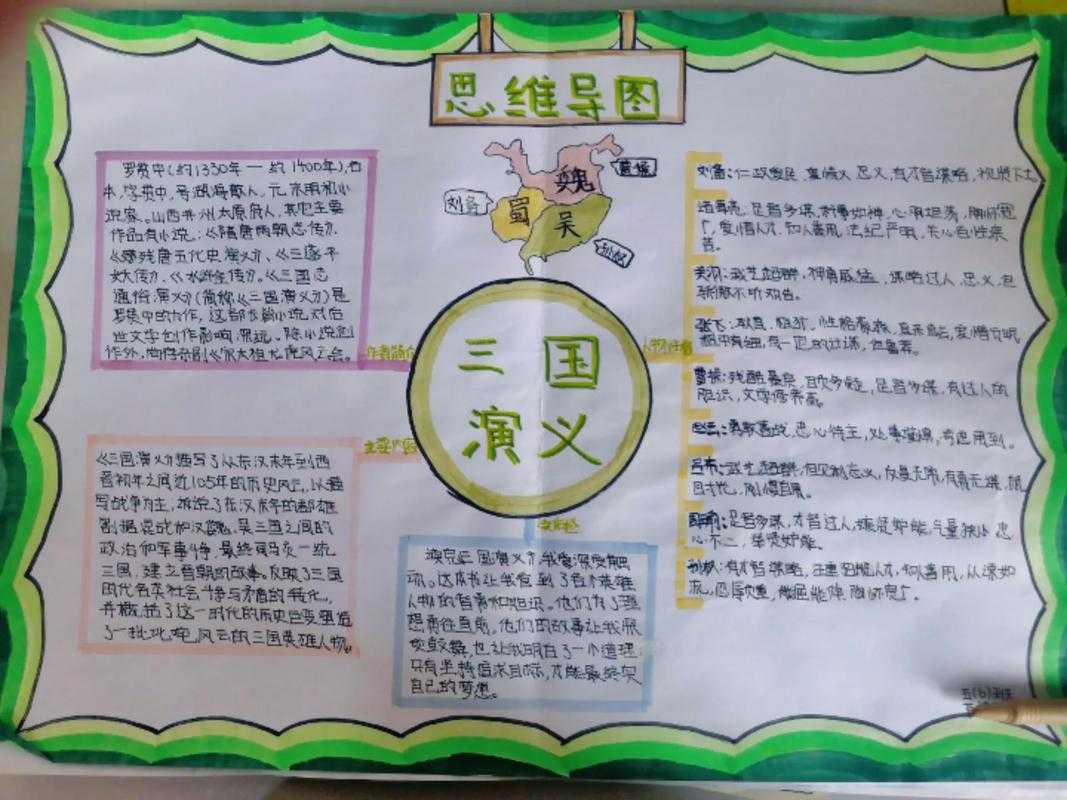 思维导图
魏
曹操
刘备
蜀
吴
孙权
三国
演义
作者简介
罗贯中(约1330年一约1400年),名
本,字贯中,号湖海散人,元末明初小
说家。山西并州太原府人,其它主要
作品有小说:《隋唐两朝志传》、
《残唐五代史演义》、《三遂平
妖传》、《水浒全传》。《三国志
通俗演义》(简称《三国演义》)是
罗贯中的力作,这部长篇小说对后
世文学创作影响深远。除小说创
作外,尚存杂剧《宋太祖龙虎风云会。
主要内容
《三国演义》描写了从东汉末年到西
晋初年之间近105年的历史风云,以描
写战争为主,诉说了在汉末年的群雄
割据混战和汉魏、吴三国之间的
政治和军事争,最终司马炎一统
三国,建立晋朝的故事。反映了三国
时代各类社会争与矛盾的转化,
并概括了这一时代的历史巨变塑造
了一批叱咤风云的三国英雄人物。
读完三国演义》,我深受触
动。这本书让我看到了各个英雄
人物的智勇和胆识。他们为了理
想勇往直前。他们的故事让我
,也让我明白了一个道理:
只有坚持追求目标,才能最终实
自己的梦想。
刘备:仁政爱民,重情义忠义,有才智谋略,礼贤下士
诸葛亮:足智多谋,料事如神,心胸坦荡,胸怀宽
广,爱惜人才,知人善用,法纪严明,关心百姓疾
苦。
关羽:武艺超群,神勇威猛,谋略过人,忠义,但
骄傲不听劝告。
张飞:耿直,粗犷,性格豪放,直来直去,爱憎分明
粗中有细,有一定的计谋,但鲁莽。
曹操:残酷暴戾,自以多疑,足智多谋,有过人的
胆识,文学修养高。
赵云:勇敢善战,忠心侍主,处事谨慎,考虑周到。
吕布:武艺超群,但见利忘义,反复无常,有勇无谋,
自才,刚愎自用。
周瑜:足智多谋,才智过人,嫉贤妒能,气量狭小,忠
心不二,举贤妒能。
孙权:有才智谋略,注重招揽人才,知人善用,从谏如
流,
五(6)班